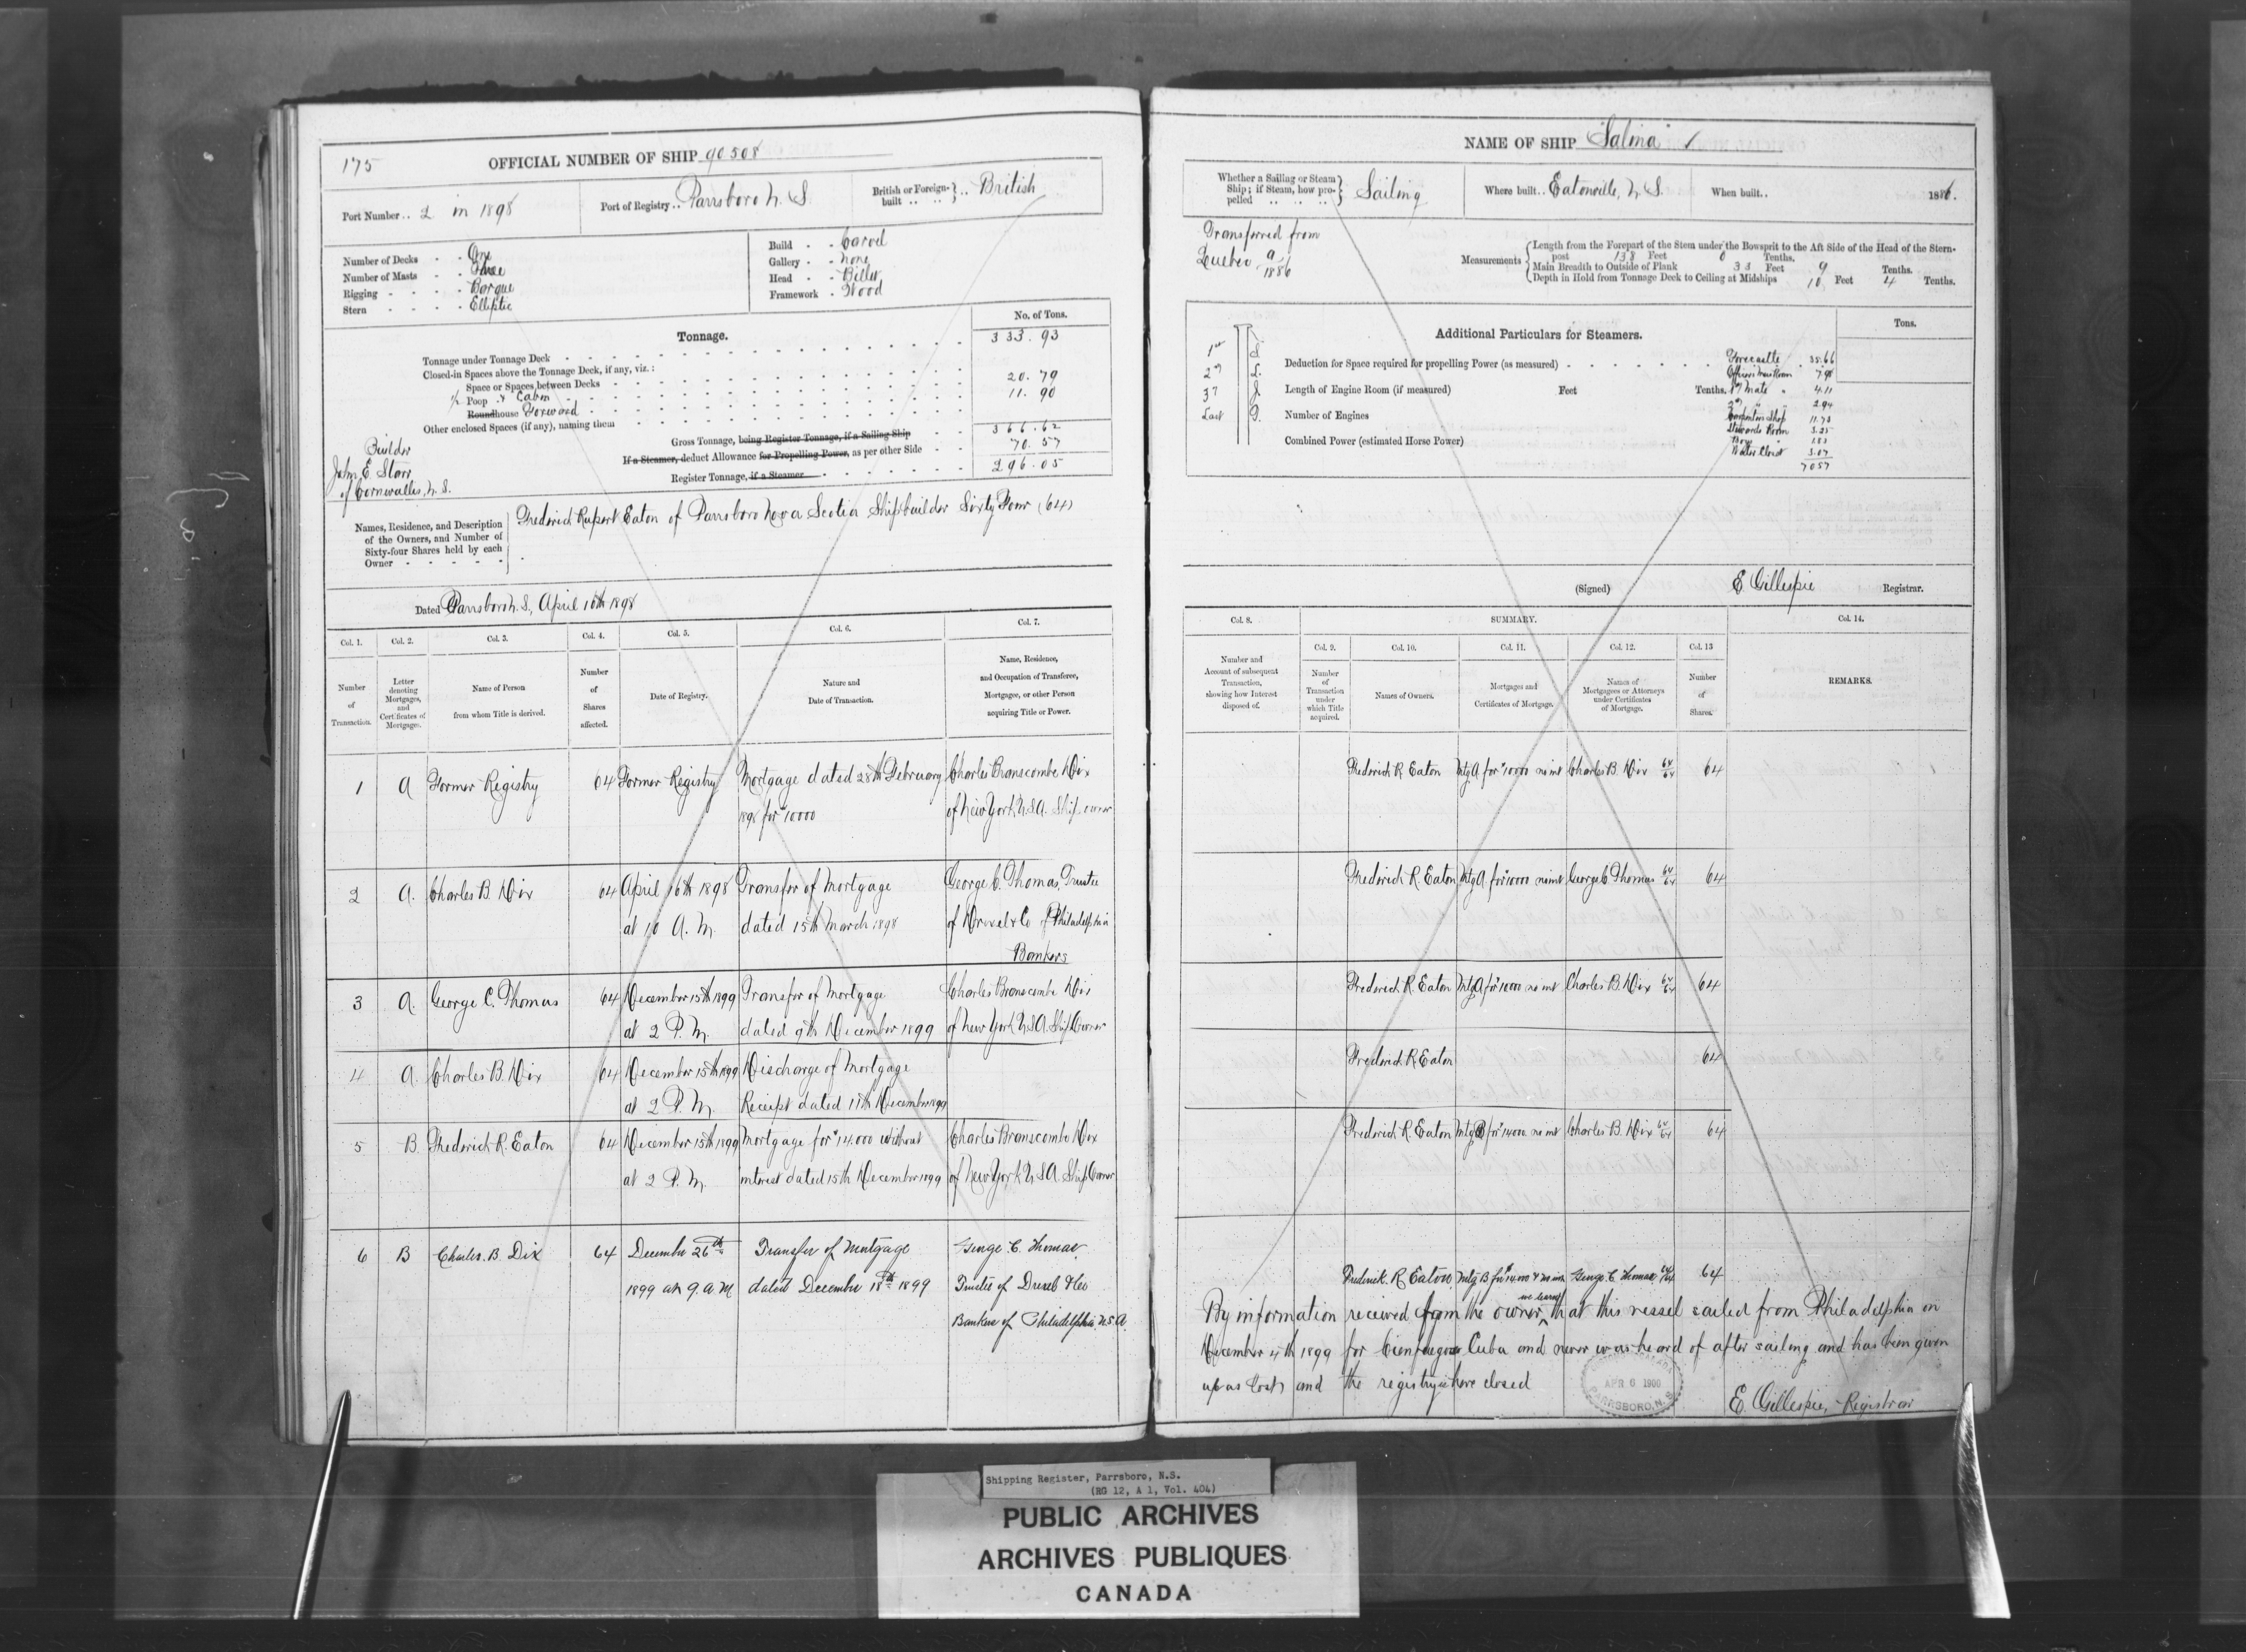 175
OFFICIAL NUMBER OF SHIP 90508
Port Number .. 2 in 1898
Port of Registry .. Parrsboro N. S.
British or Foreign-built .. British
Number of Decks - - One
Number of Masts - - Three
Rigging - - - - Barque
Stern - - - - Elliptic
Build - - Carvel
Gallery - - none
Head - - Billet
Framework - Wood
Tonnage.
No. of Tons.
Tonnage under Tonnage Deck 333.93
Closed-in Spaces above the Tonnage Deck, if any, viz.:
Space or Spaces between Decks
½ Poop & Cabin 20.79
Roundhouse Forward 11.90
Other enclosed Spaces (if any), naming them
Gross Tonnage, being Register Tonnage, if a Sailing Ship 366.62
If a Steamer, deduct Allowance for Propelling Power, as per other Side 70.57
Register Tonnage, if a Steamer 296.05
Builder
John E. Starr
of Cornwallis, N. S.
Names, Residence, and Description
of the Owners, and Number of
Sixty-four Shares held by each
Owner
Frederick Rupert Eaton of Parrsboro Nova Scotia Shipbuilder Sixty Four (64)
Dated Parrsboro N. S., April 16th 1898
Col. 1. Col. 2. Col. 3. Col. 4. Col. 5. Col. 6. Col. 7.
Number of Transaction.
Letter denoting Mortgages, and Certificates of Mortgages.
Name of Person from whom Title is derived.
Number of Shares affected.
Date of Registry.
Nature and Date of Transaction.
Name, Residence, and Occupation of Transferee, Mortgagee, or other Person acquiring Title or Power.
1 A Former Registry 64 Former Registry Mortgage dated 28th February Charles Branscombe Dix
1898 for $10000 of New York, U.S.A. Ship owner
2 A. Charles B. Dix 64 April 16th 1898 Transfer of Mortgage George C. Thomas, Trustee
at 10 A. M. dated 15th March 1898 of Drexel & Co of Philadelphia
Bankers
3 A. George C. Thomas 64 December 15th 1899 Transfer of Mortgage Charles Branscombe Dix
at 2 P. M. dated 9th December 1899 of New York U.S.A. Ship Owner
4 A. Charles B. Dix 64 December 15th 1899 Discharge of Mortgage
at 2 P. M. Receipt dated 11th December 1899
5 B. Frederick R. Eaton 64 December 15th 1899 Mortgage for $14.000 without Charles Branscombe Dix
at 2 P. M. interest dated 15th December 1899 of New York U.S.A. Ship Owner
6 B Charles. B. Dix 64 December 26th Transfer of Mortgage George. C. Thomas
1899 at 9. a M dated December 18th 1899 Trustee of Drexel & Co
Bankers of Philadelphia, U.S.A.
NAME OF SHIP "Salina"
Whether a Sailing or Steam Ship; if Steam, how propelled Sailing
Where built .. Eatonville, N. S.
When built .. 1886.
Transferred from
Quebec 9/1886
Measurements
Length from the Forepart of the Stem under the Bowsprit to the Aft Side of the Head of the Stern-
post 138 Feet 0 Tenths.
Main Breadth to Outside of Plank 33 Feet 9 Tenths.
Depth in Hold from Tonnage Deck to Ceiling at Midships 10 Feet 4 Tenths.
Additional Particulars for Steamers.
Tons.
Deduction for Space required for propelling Power (as measured)
Length of Engine Room (if measured) Feet Tenths.
Number of Engines
Combined Power (estimated Horse Power)
Forecastle 35.66
Officers Mess Room
1st Mate " 4.11
2nd " " 2.94
Carpenters Shop
Stewards Room 3.25
Boys "
Water Closet 3.07
70.57
(Signed) E. Gillespie Registrar.
Col. 8. SUMMARY. Col. 14.
Col. 9. Col. 10. Col. 11. Col. 12. Col. 13
Number and Account of subsequent Transaction, showing how Interest disposed of.
Number of Transaction under which Title acquired.
Names of Owners.
Mortgages and Certificates of Mortgage.
Names of Mortgagees or Attorneys under Certificates of Mortgage.
Number of Shares.
REMARKS.
Frederick R. Eaton Mtg A for $10000 no int Charles B. Dix 64/64 64
Frederick R. Eaton Mtg A for $10000 no int George C Thomas 64/64 64
Frederick R. Eaton Mtg A for $10000 no int Charles B. Dix 64/64 64
Frederick R Eaton 64
Frederick R. Eaton Mtg B for $14000 no int Charles B. Dix 64/64 64
Frederick. R Eaton Mtg B for $14.000 & no int George C Thomas 64/64 64
By information received from the owner we learn that this vessel sailed from Philadelphia on
December 4th 1899 for Cienfuegos Cuba and never was heard of after sailing and has been given
up as lost, and the registry is here closed
APR 6 1900
PARRSBORO, N. S.
E. Gillespie, Registrar
Shipping Register, Parrsboro, N.S.
(RG 12, A 1, Vol. 404)
PUBLIC ARCHIVES
ARCHIVES PUBLIQUES
CANADA